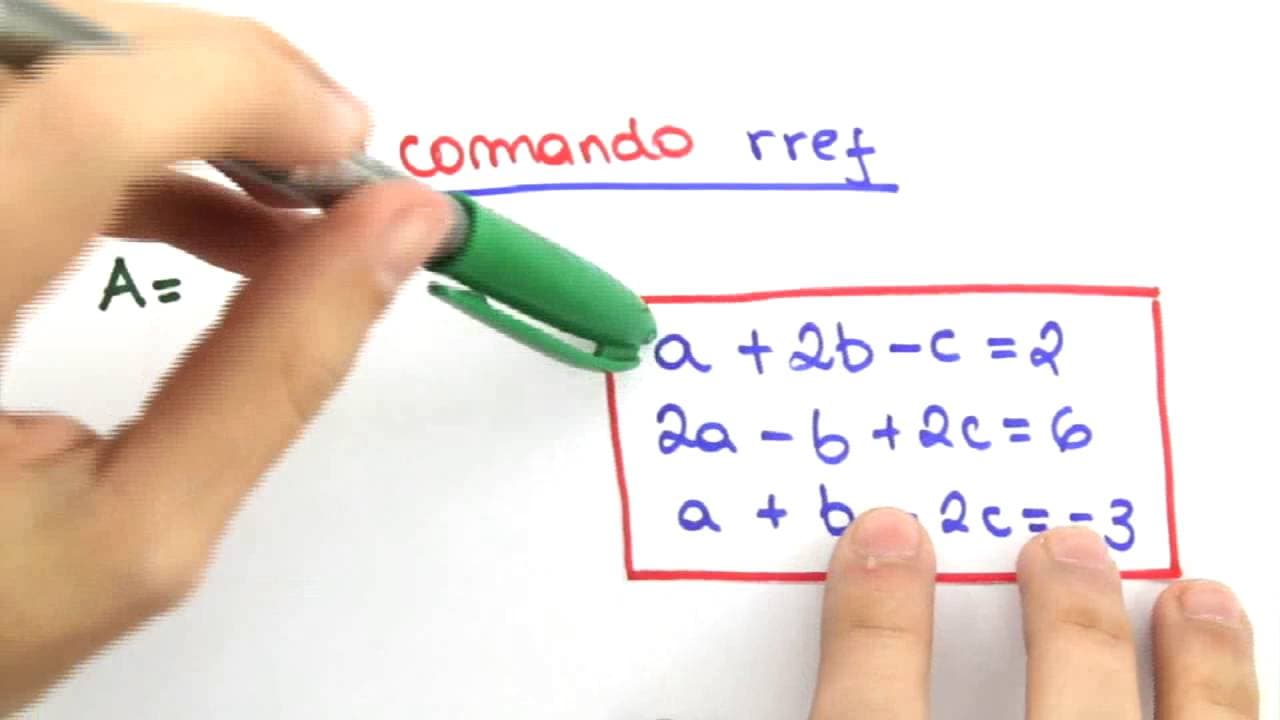 comando rref
A=
a + 2b - c = 2
2a - b + 2c = 6
a + b - 2c = -3